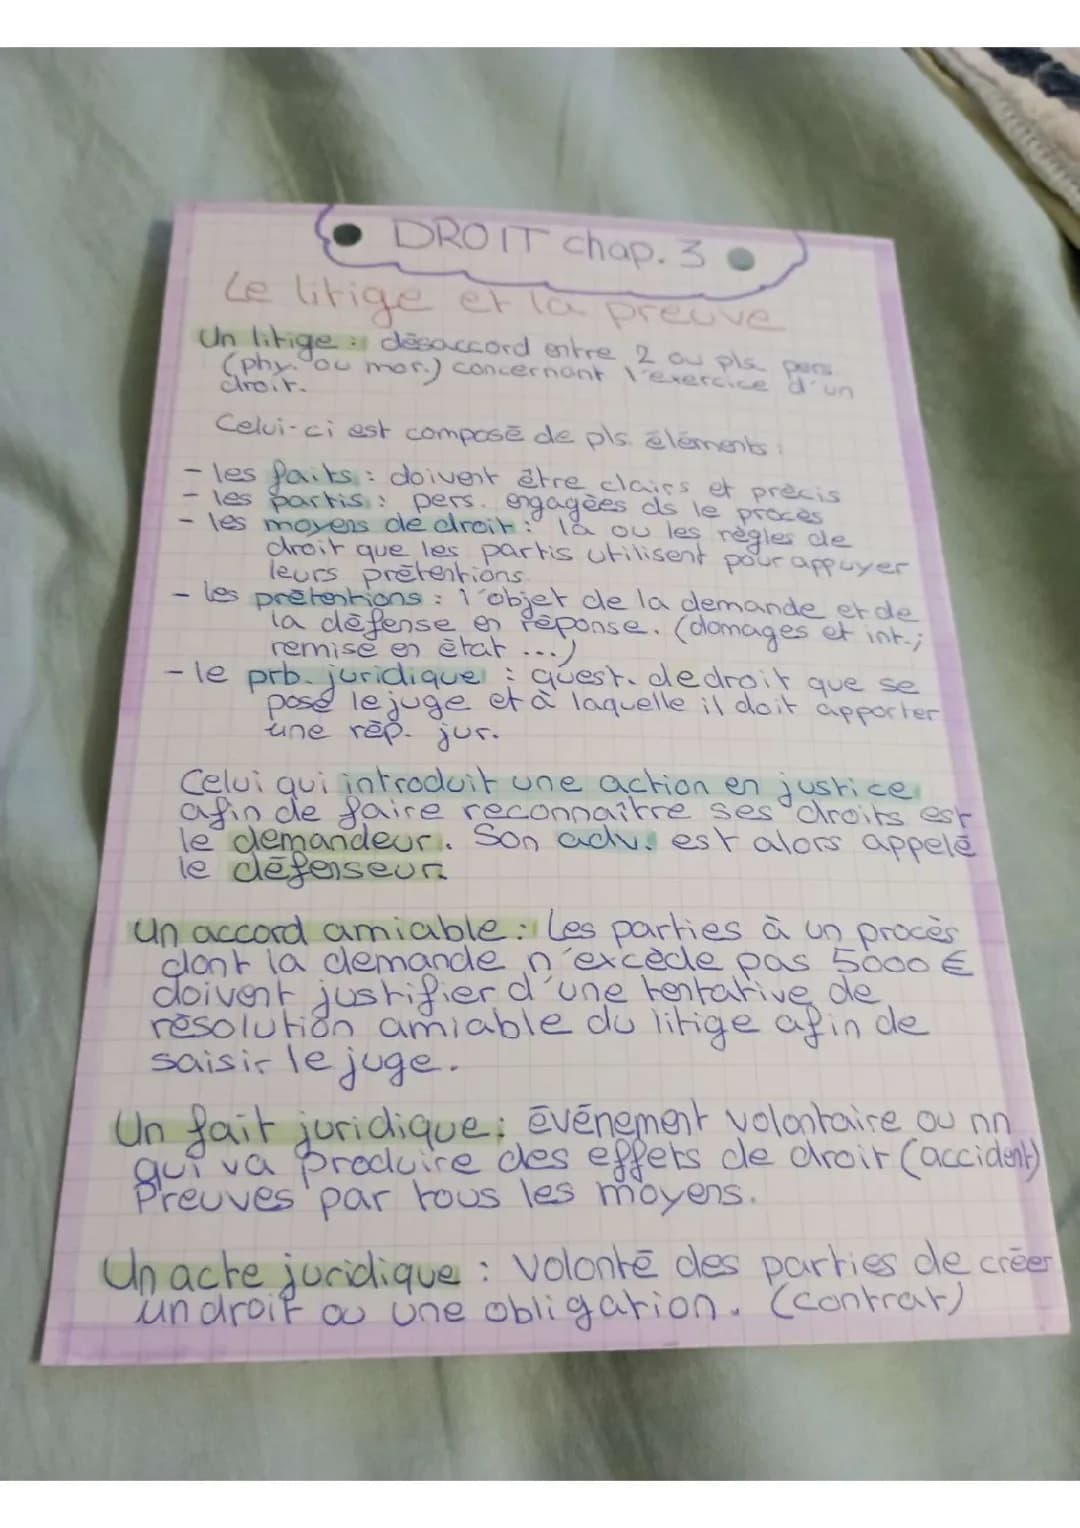 DROIT chap. 3
Le litige et la preuve
Un litige : désaccord entre 2 ou pls pers.
(phy. ou mor.) concernant l'exercice d'un
droit.
Celui-ci est composé de pls. éléments :
- les faits : doivent être clairs et précis
- les partis : pers. engagées ds le procès
- les moyens de droit : la ou les règles de
droit que les partis utilisent pour appuyer
leurs prétentions.
- les prétentions : l'objet de la demande et de
la défense en réponse. (domages et int.;
remise en état ...)
- le prb. juridique : quest. de droit que se
pose le juge et à laquelle il doit apporter
une rép. jur.
Celui qui introduit une action en justice
afin de faire reconnaître ses droits est
le demandeur. Son adv. est alors appelé
le défenseur.
Un accord amiable : Les parties à un procès
dont la demande n'excède pas 5000 €
doivent justifier d'une tentative de
résolution amiable du litige afin de
saisir le juge.
Un fait juridique : événement volontaire ou nn
qui va produire des effets de droit (accident)
Preuves par tous les moyens.
Un acte juridique : Volonté des parties de créer
un droit ou une obligation. (contrat)